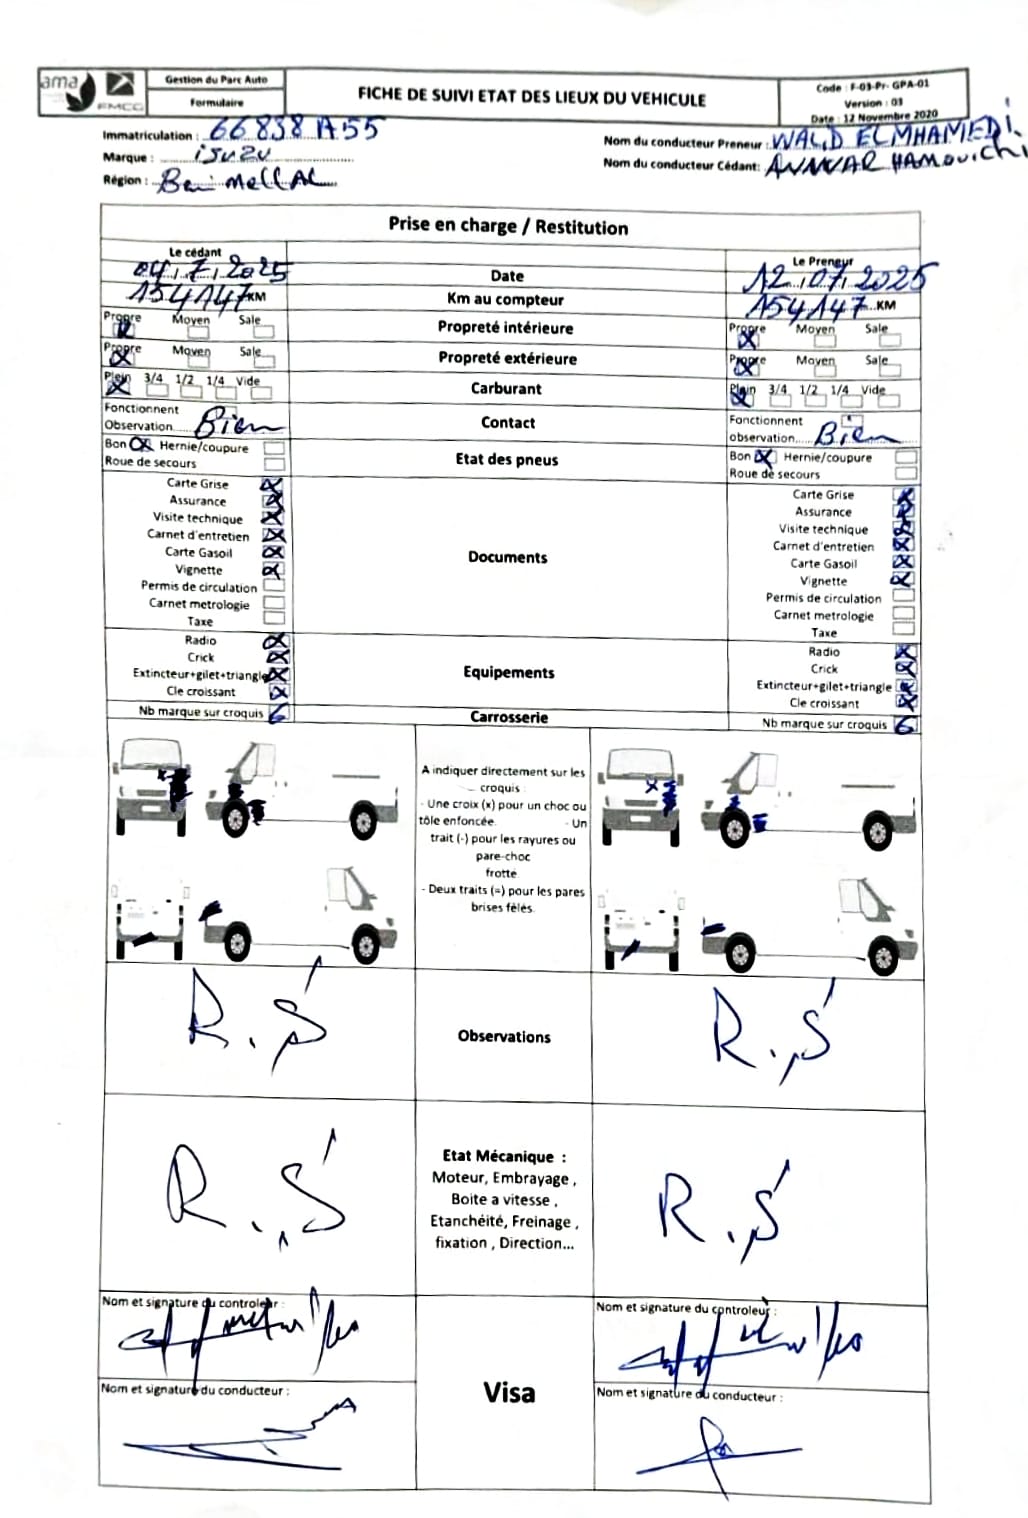 ama
FMCG
Gestion du Parc Auto
Formulaire
FICHE DE SUIVI ETAT DES LIEUX DU VEHICULE
Code : F-03-Pr- GPA-01
Version : 03
Date : 12 Novembre 2020
Immatriculation : 66838 A55
Marque : isuzu
Région : Beni MellAL
Nom du conducteur Preneur : WALID ELMHAMEDI
Nom du conducteur Cédant: ANWAR HAMOUICHI
Prise en charge / Restitution
Le cédant
Le Preneur
04.7.2025 Date 12.07.2025
154147 KM Km au compteur 154147 KM
Propre Moyen Sale Propreté intérieure Propre Moyen Sale
Propre Moyen Sale Propreté extérieure Propre Moyen Sale
Plein 3/4 1/2 1/4 Vide Carburant Plein 3/4 1/2 1/4 Vide
Fonctionnent Contact Fonctionnent
Observation Bien observation Bien
Bon Hernie/coupure Etat des pneus Bon Hernie/coupure
Roue de secours Roue de secours
Documents
Carte Grise Carte Grise
Assurance Assurance
Visite technique Visite technique
Carnet d'entretien Carnet d'entretien
Carte Gasoil Carte Gasoil
Vignette Vignette
Permis de circulation Permis de circulation
Carnet metrologie Carnet metrologie
Taxe Taxe
Equipements
Radio Radio
Crick Crick
Extincteur+gilet+triangle Extincteur+gilet+triangle
Cle croissant Cle croissant
Nb marque sur croquis 6 Carrosserie Nb marque sur croquis 6
A indiquer directement sur les
croquis :
- Une croix (x) pour un choc ou
tôle enfoncée. - Un
trait (-) pour les rayures ou
pare-choc
frotté
- Deux traits (=) pour les pares
brises fêlés.
R.S Observations R.S
R.S Etat Mécanique : R.S
Moteur, Embrayage ,
Boite a vitesse ,
Etanchéité, Freinage ,
fixation , Direction...
Nom et signature du controleur : Nom et signature du controleur :
Visa
Nom et signature du conducteur : Nom et signature du conducteur :